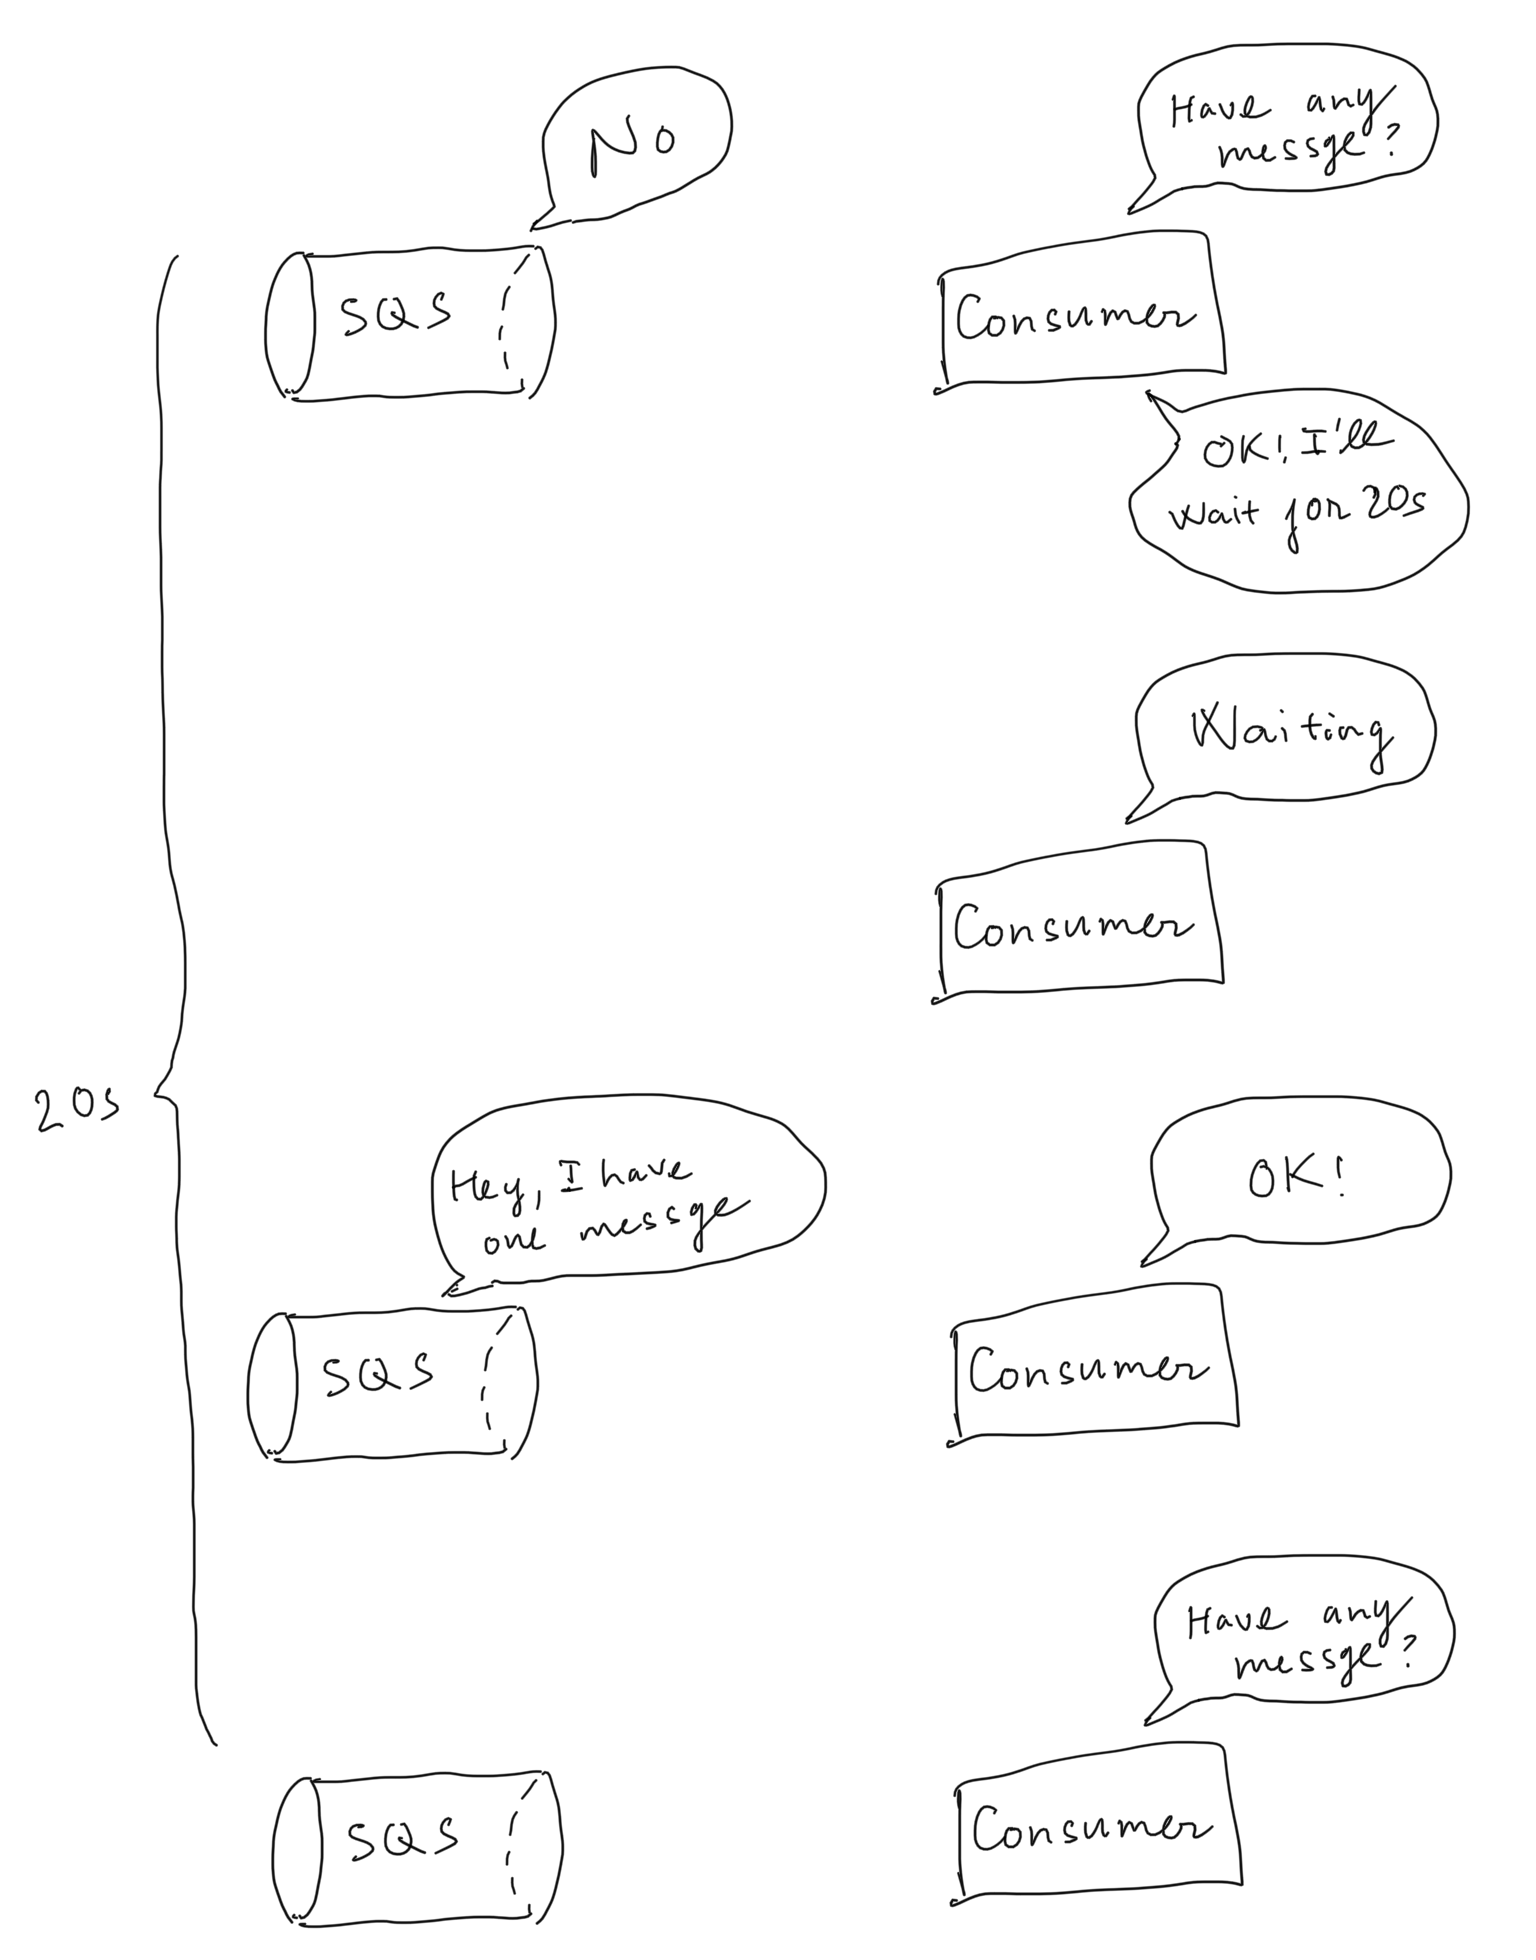 No
Have any
messge?
SQS
Consumer
OK! I'll
wait for 20s
Waiting
Consumer
20s
Hey, I have
one messge
OK!
SQS
Consumer
Have any
messge?
SQS
Consumer